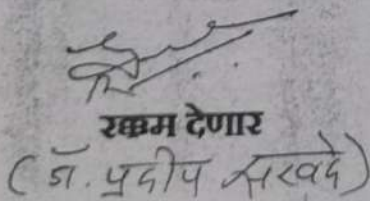 रक्कम देणार
(डॉ. प्रदीप सरवदे)